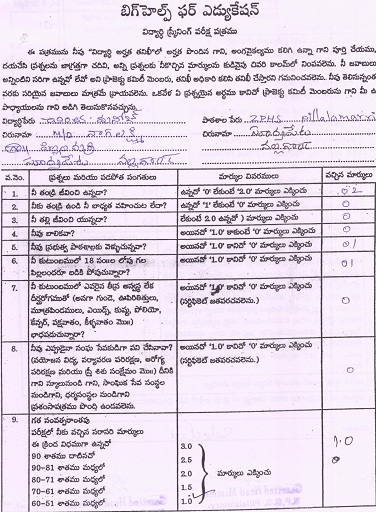 బిగ్‌హెల్ప్ ఫర్ ఎడ్యుకేషన్
విద్యార్థి స్క్రీనింగ్ పరీక్ష పత్రము
ఈ పత్రమును నీవు "విద్యార్థి అర్హత తనిఖీ"లో అర్హత పొందిన గాని, అంగవైకల్యము కలిగి ఉన్నా గాని పూర్తి చేయుము,
దయచేసి ప్రశ్నలను జాగ్రత్తగా చదివి, అన్ని ప్రశ్నలకు నీకొచ్చిన మార్కులను కుడివైపు చివరి కాలమ్‌లో నింపవలెను. నీ జవాబులు
అన్నింటిని సరిగా ఉన్నవో లేవో అని ప్రాజెక్టు కమిటీ మెంబరు, తనిఖీ అధికారి కలిసి తనిఖీ చేస్తారని గమనించవలెను. నీవు తెలిసినున్నంత
వరకు సరియైన జవాబులు మాత్రమే వ్రాయవలెను. ఒకవేళ ఏ ప్రశ్నయైన అర్థము కానిచో ప్రాజెక్టు కమిటీ మెంబరును గాని మీ
ఉపాధ్యాయులను గాని అడిగి తెలుసుకొనవచ్చును.
విద్యార్థిపేరు పాఠశాల పేరు ZPHS pillalamarri
చిరునామా M/o నాగలక్ష్మి చిరునామా సూర్యాపేట
గ్రామం పిల్లలమర్రి నల్లగొండ
సూర్యాపేట నల్లగొండ
వ.నెం. ప్రశ్నలు మరియు పడిపోత సంగతులు మార్కుల వివరములు వచ్చిన మార్కులు
1. నీ తండ్రి జీవించి ఉన్నాడా? ఉన్నచో '0' లేకుంటే '2.0' మార్కులు ఎక్కించు 02
2. నీకు తండ్రి ఉండి నీ బాధ్యత వహించుట లేదా? ఉన్నచో '1' లేకుంటే '0' మార్కులు ఎక్కించు 0
3. నీ తల్లి జీవించి యున్నదా? లేకుంటే 2.0 ఉన్నచో ) మార్కులు ఎక్కించు 0
4. నీవు బాలికవా? అయినచో '1.0' కాకుంటే '0' మార్కులు ఎక్కించు 0
5. నీవు ప్రభుత్వ పాఠశాలకు వెళ్ళుచున్నావా? అయినచో '1.0' కానిచో '0' మార్కులు ఎక్కించు 01
6. నీ కుటుంబములో 18 సం॥ల లోపు గల అయినచో '1.0' కానిచో '0' మార్కులు ఎక్కించు 01
పిల్లలందరూ బడికి పోవుచున్నారా?
7. నీ కుటుంబములో ఎవరైన తీవ్ర అస్వస్థత లేక అయినచో '1.0' కానిచో '0' మార్కులు ఎక్కించు 0
దీర్ఘరోగముతో (అనగా గుండె, ఊపిరితిత్తులు, (సర్టిఫికెట్ జతపరచవలెను.)
మూత్రపిండములు, ఎయిడ్స్, కుష్ఠు, పోలియో,
కేన్సర్, పక్షవాతం, కీళ్ళవాతం మొ॥)
బాధపడుచున్నారా?
8. నీవు ఎప్పుడైనా సంఘ సేవకుడిగా పని చేసినావా? అయినచో '1.0' కానిచో '0' మార్కులు ఎక్కించు 0
(వయోజన విద్య, పర్యావరణ పరిరక్షణ, ఆరోగ్య (సర్టిఫికెట్ జతపరచవలెను.)
పరిరక్షణ మరియు స్త్రీ శిశు సంక్షేమం మొ॥) దీనికి
గాని స్కూలునుండి గాని, సాంఘిక సేవ సంస్థల
నుండిగాని, ధర్మసంస్థల నుండిగాని
ప్రశంసాపత్రము పొంది ఉండవలెను.
9. గత సంవత్సరాంతపు
పరీక్షలో నీకు వచ్చిన సరాసరి మార్కులు 1.0
ఈ క్రింది విధముగా ఉన్నచో
90 శాతము దాటినచో 3.0
90-81 శాతము మధ్యలో 2.5
80-71 శాతము మధ్యలో 2.0 మార్కులు ఎక్కించు
70-61 శాతము మధ్యలో 1.5
60-51 శాతము మధ్యలో 1.0